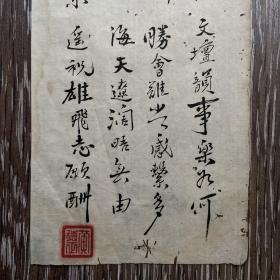 文壇韻事樂如何
勝會難忘感繫多
海天遼濶晤無由
遙祝雄飛志願酬